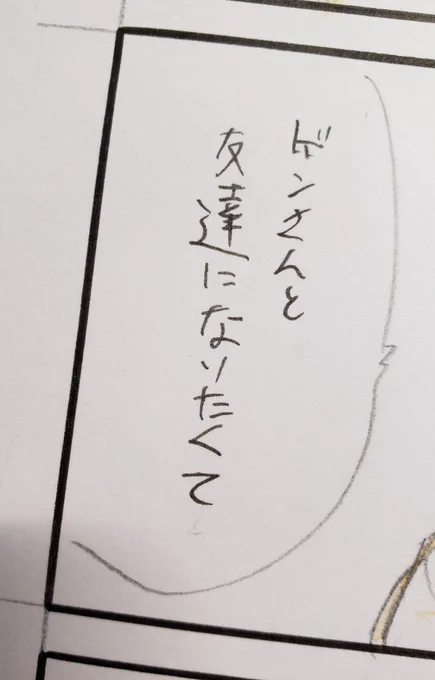 ゲンさんと
友達になりたくて